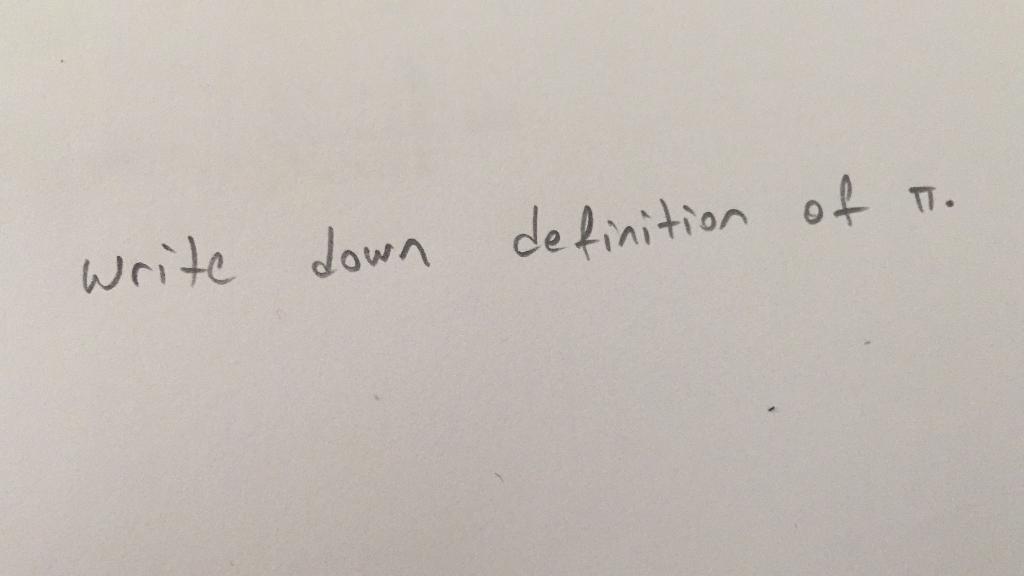 write down definition of π.